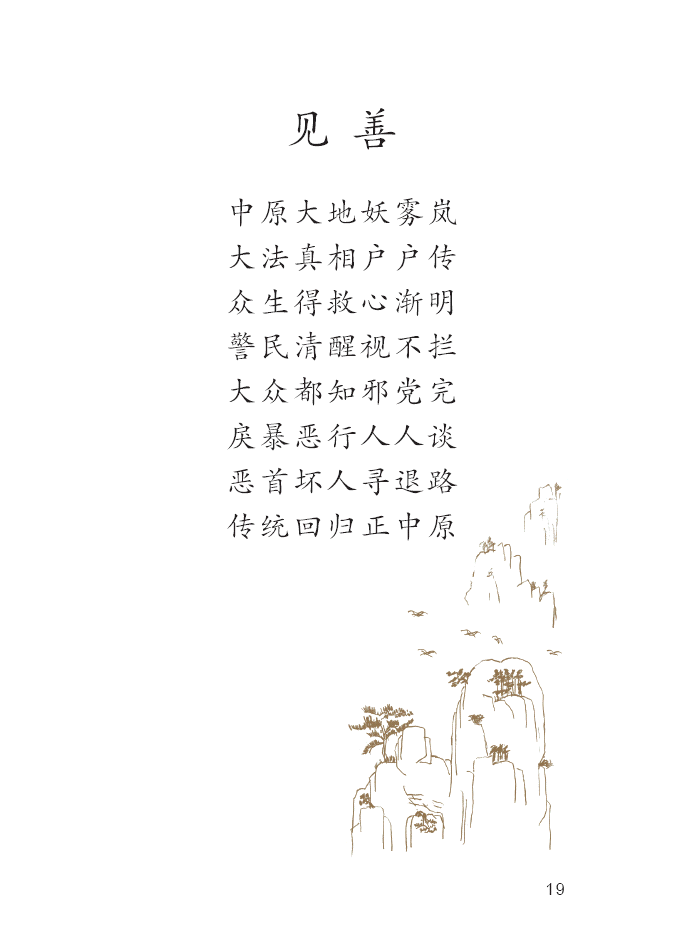 见善
中原大地妖雾岚
大法真相户户传
众生得救心渐明
警民清醒视不拦
大众都知邪党完
戾暴恶行人人谈
恶首坏人寻退路
传统回归正中原
19